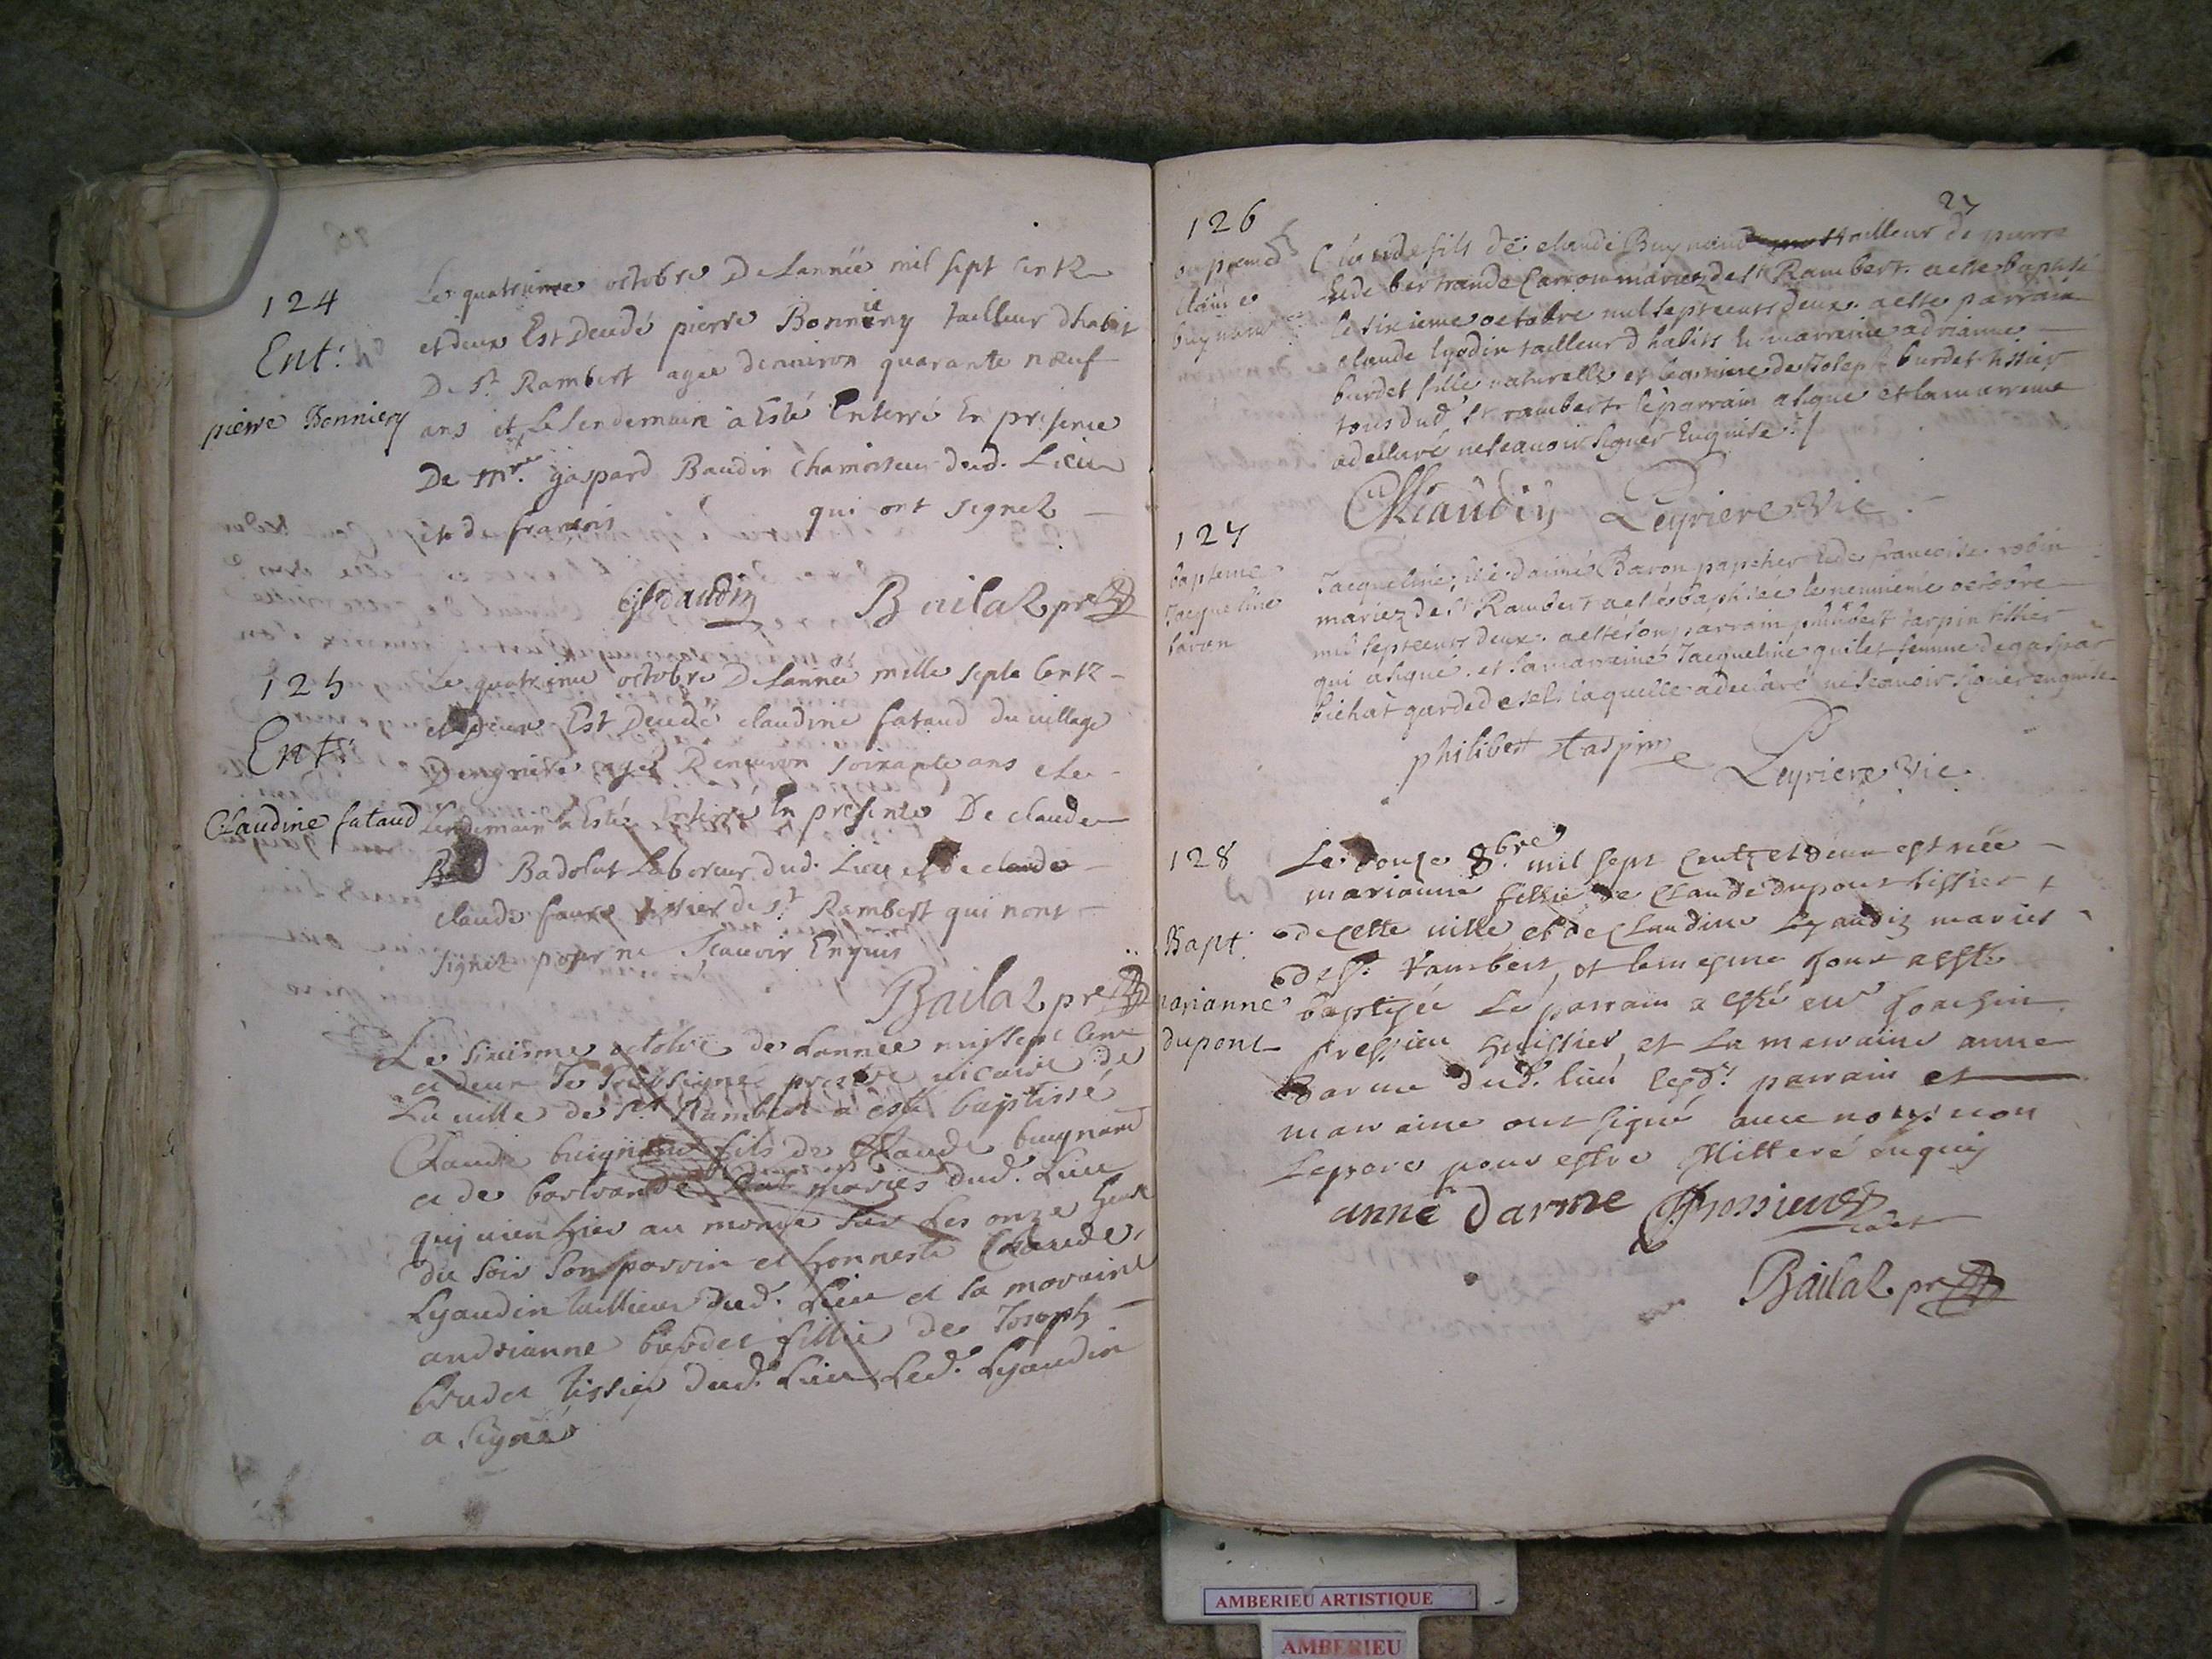 124
Ent:
pierre Bonniery
Le quatrieme octobre De Lannée mil sept centz
et deux Est Decedé pierre Bonniery tailleur dhabit
De St. Rambert agee denniron quarante nœuf
ans et Le lendemain a Esté Enterré En presence
De mre. gaspard Baudin chamoiseur dud. Lieu
et de francois qui ont signez
Bailaz pre
125
Ent:
Claudine fataud
Le quatrieme octobre De Lannée mille septe centz
et Deux Est Decedé claudine fataud du village
agee Denuiron soixante ans et le
Lendemain a Esté Enterré En presence De claude
Badolut Laboreur dud. Lieu et de claude
claude faure tissier de St. Rambert qui nont
signez pour ne scauoir Enquis
Bailaz pre
Le sixiesme octobre de Lannee mil sept cent
et deux Je soubsigné prestre uicaire de
La uille de St Rambert a esté baptissé
Claude buignand fils de Claude buignand
et de bertrande mariés dud. Lieu
quj uien hier au monde sur Les onze heure
du soir son parrin et honneste Claude
Lyaudin tallieur dud. Lieu et sa moraine
andrianne burdet fillie de Joseph
Brudet tissier dud. Lieu Led. Lyaudin
a signé
27
126
bapteme
claude
buynand
Claude fils de claude Buynand tailleur de pierre
et de bertrande Carron mariez de St Rambert a este baptisé
le sixieme octobre mil septcents deux. a este parrain
claude lyodin tailleur d habits et marraine adrianne
burdet fille naturelle et legitime de Joseph burdet tissier
tous dud St rambert le parrain a signe et la marreine
a declaré ne scauoir signer Enquise
Leyriere Vic
127
bapteme
Jacqueline
baron
Jacqueline fille daimé Baron papetier et de francoise robin
mariez de St Rambert a eté baptisée le neuuieme octobre
mil septcents deux. a esté son parrain philibert tarpin tissier
qui a signé. et sa marraine Jacqueline guilet femme de gaspar
bichat garde de sel. laquelle a declaré ne scauoir signer enquise
philibert tarpin Leyriere Vic
128
Bapt.
marianne
dupont
Le douze 8bre mil sept centz et deux est née
marianne fillie de Claude dupont tissier
de cette uille et de Claudine Lyaudiz mariés
de St. Rambert, et le mesme jour a esté
baptisée Le parrain a esté Joachin
fressieu huissier, et La marraine anne
Darme dud. lieu lesd. parrain et
marraine ont signé auec nous non
Le pere pour estre illitteré enquis
anne Darme fressieux
cadet
Bailaz pre
AMBERIEU ARTISTIQUE
AMBERIEU